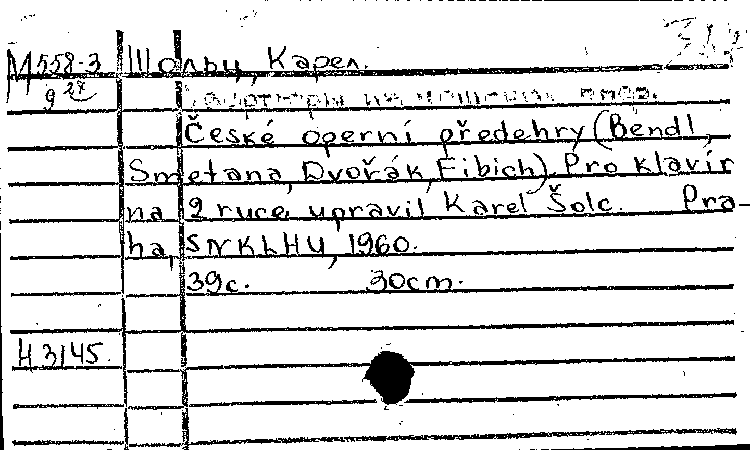 М558-3 Шольц, Карел.
927
České operní předehry (Bendl,
Smetana, Dvořák, Fibich). Pro klavír
na 2 ruce upravil Karel Šolc. Pra-
ha, SNKLHU, 1960.
39c. 30cm.
Н 3145.